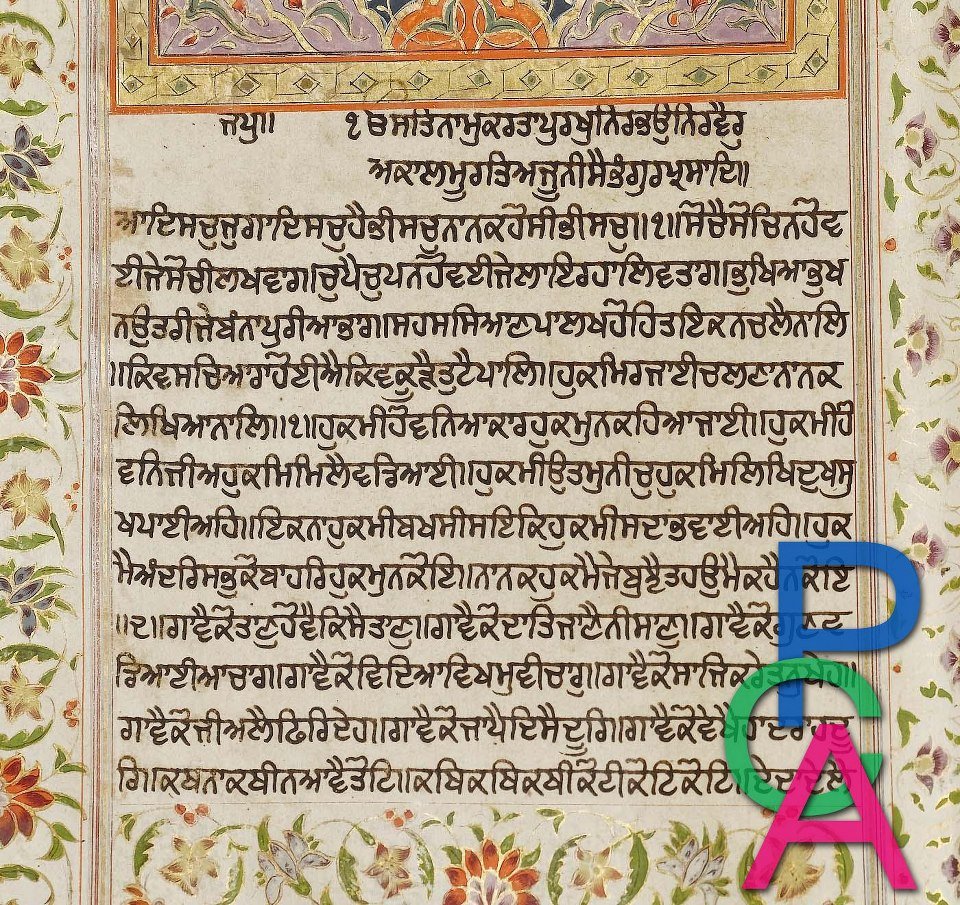 ਜਪੁ॥ ੧ਓ ਸਤਿਨਾਮੁਕਰਤਾਪੁਰਖੁਨਿਰਭਉਨਿਰਵੈਰੁ
ਅਕਾਲਮੂਰਤਿਅਜੂਨੀਸੈਭੰਗੁਰਪ੍ਰਸਾਦਿ॥
ਆਦਿਸਚੁਜੁਗਾਦਿਸਚੁਹੈਭੀਸਚੁਨਾਨਕਹੋਸੀਭੀਸਚੁ॥੧॥ਸੋਚੈਸੋਚਿਨਹੋਵ
ਈਜੇਸੋਚੀਲਖਵਾਰ॥ਚੁਪੈਚੁਪਨਹੋਵਈਜੇਲਾਇਰਹਾਲਿਵਤਾਰ॥ਭੁਖਿਆਭੁਖ
ਨਉਤਰੀਜੇਬੰਨਾਪੁਰੀਆਭਾਰ॥ਸਹਸਸਿਆਣਪਾਲਖਹੋਹਿਤਇਕਨਚਲੈਨਾਲਿ
॥ਕਿਵਸਚਿਆਰਾਹੋਈਐਕਿਵਕੂੜੈਤੁਟੈਪਾਲਿ॥ਹੁਕਮਿਰਜਾਈਚਲਣਾਨਾਨਕ
ਲਿਖਿਆਨਾਲਿ॥੧॥ਹੁਕਮੀਹੋਵਨਿਆਕਾਰਹੁਕਮੁਨਕਹਿਆਜਾਈ॥ਹੁਕਮੀਹੋ
ਵਨਿਜੀਅਹੁਕਮਿਮਿਲੈਵਡਿਆਈ॥ਹੁਕਮੀਉਤਮੁਨੀਚੁਹੁਕਮਿਲਿਖਿਦੁਖਸੁ
ਖਪਾਈਅਹਿ॥ਇਕਨਾਹੁਕਮੀਬਖਸੀਸਇਕਿਹੁਕਮੀਸਦਾਭਵਾਈਅਹਿ॥ਹੁਕ
ਮੈਅੰਦਰਿਸਭੁਕੋਬਾਹਰਿਹੁਕਮੁਨਕੋਇ॥ਨਾਨਕਹੁਕਮੈਜੇਬੁਝੈਤਹਉਮੈਕਹੈਨਕੋਇ
॥੨॥ਗਾਵੈਕੋਤਾਣੁਹੋਵੈਕਿਸੈਤਾਣੁ॥ਗਾਵੈਕੋਦਾਤਿਜਾਣੈਨੀਸਾਣੁ॥ਗਾਵੈਕੋਗੁਣਵ
ਡਿਆਈਆਚਾਰ॥ਗਾਵੈਕੋਵਿਦਿਆਵਿਖਮੁਵੀਚਾਰੁ॥ਗਾਵੈਕੋਸਾਜਿਕਰੇਤਨੁਖੇਹ॥
ਗਾਵੈਕੋਜੀਅਲੈਫਿਰਿਦੇਹ॥ਗਾਵੈਕੋਜਾਪੈਦਿਸੈਦੂਰਿ॥ਗਾਵੈਕੋਵੇਖੈਹਾਦਰਾਹਦੂ
ਰਿ॥ਕਥਨਾਕਥੀਨਆਵੈਤੋਟਿ॥ਕਥਿਕਥਿਕਥੀਕੋਟੀਕੋਟਿਕੋਟਿ॥ਦੇਦਾਦੇਲੈ
PGA